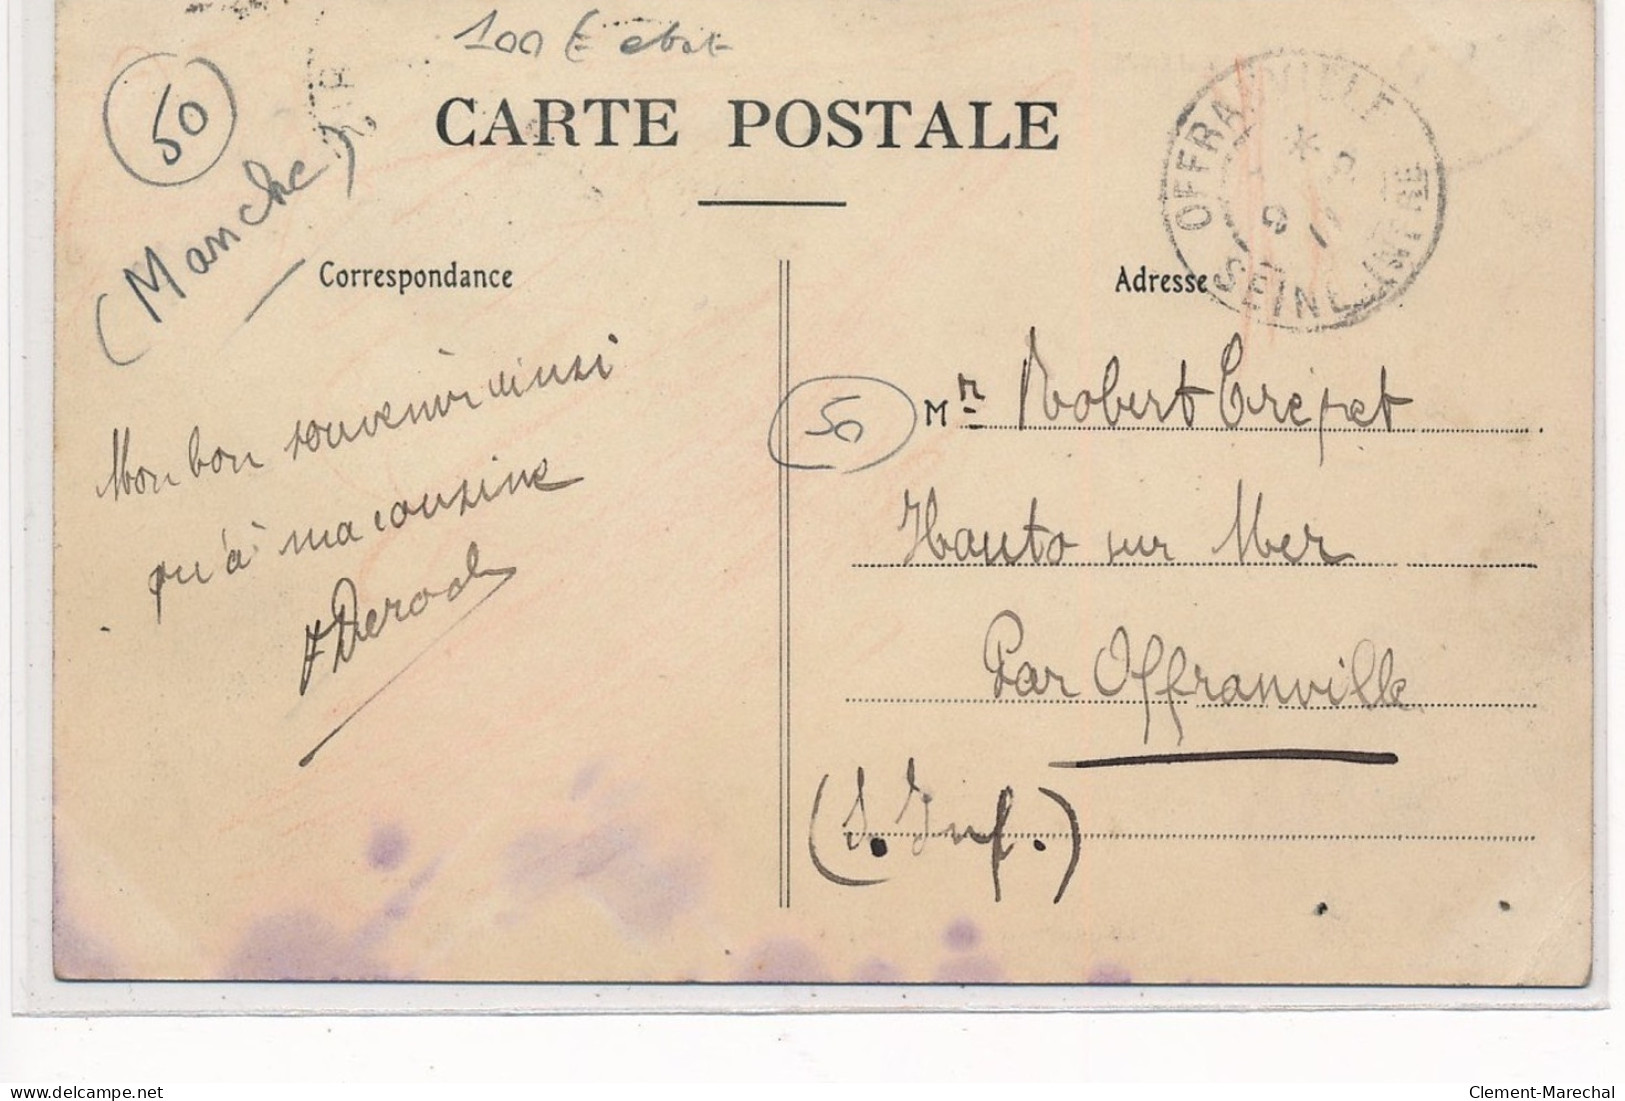 100 € etat
50
(Manche)
CARTE POSTALE
OFFRANVILLE
SEINE INFRE
Correspondance
Adresse
Mon bon souvenir ainsi
qu'à ma cousine
Derode
50
Mr Robert Crépet
Hauto sur Mer
Par Offranville
(S. Inf.)
www.delcampe.net
Clement-Marechal